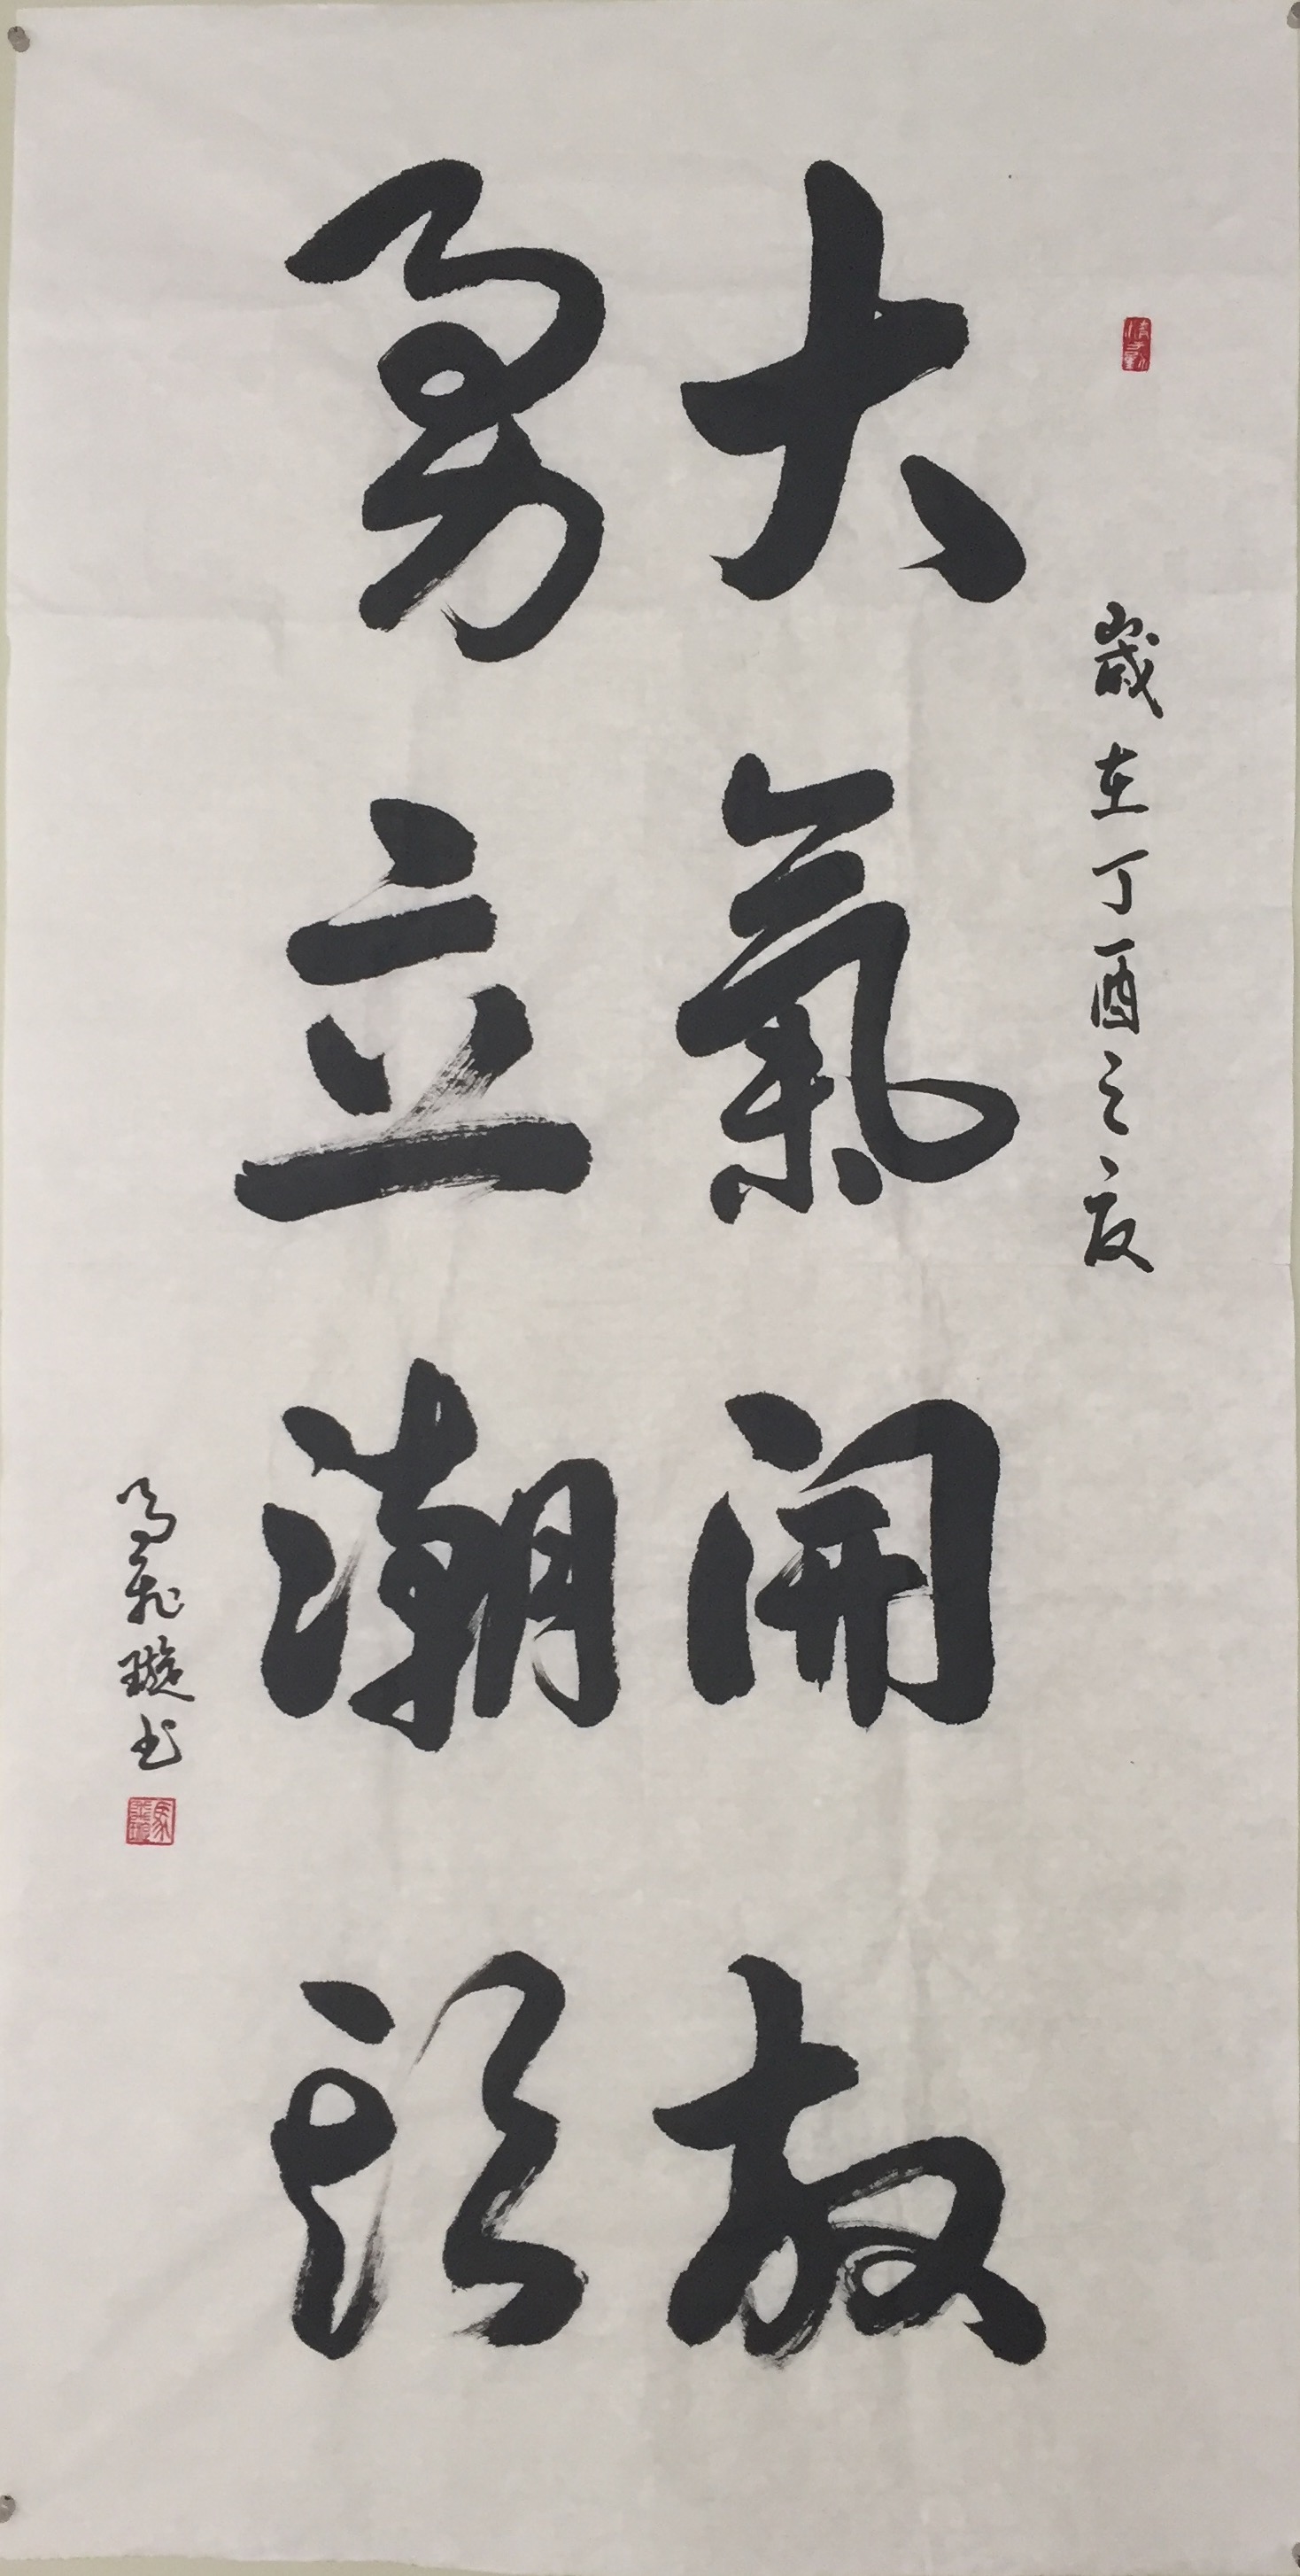 歲在丁酉之夏
大氣開放
勇立潮頭
馬飛璇书